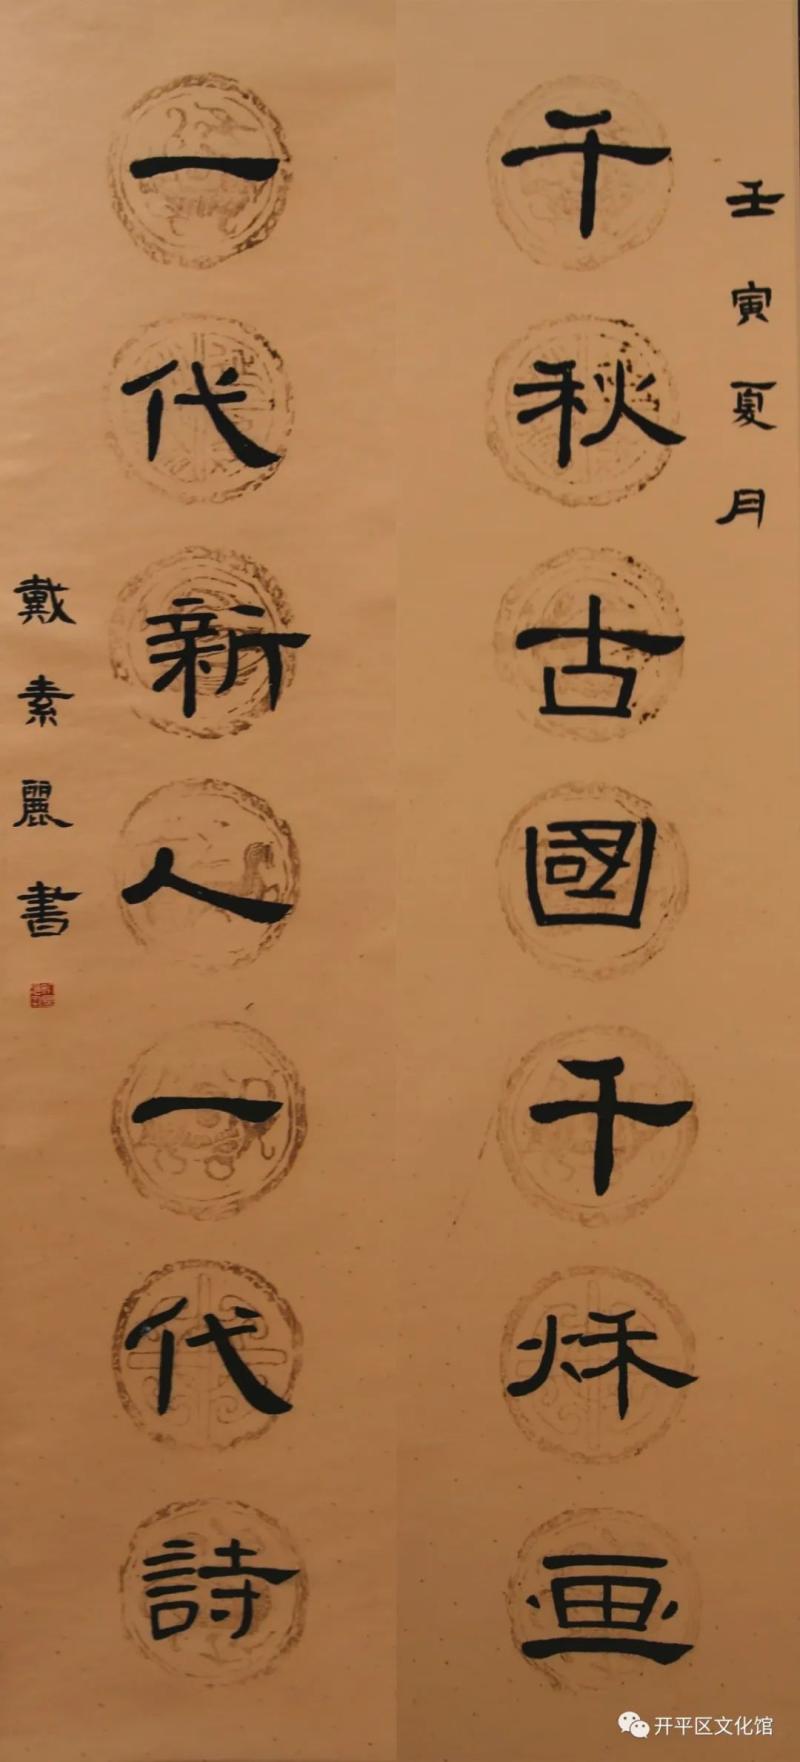 壬寅夏月
千秋古國千秌画
一代新人一代詩
戴素麗書
开平区文化馆